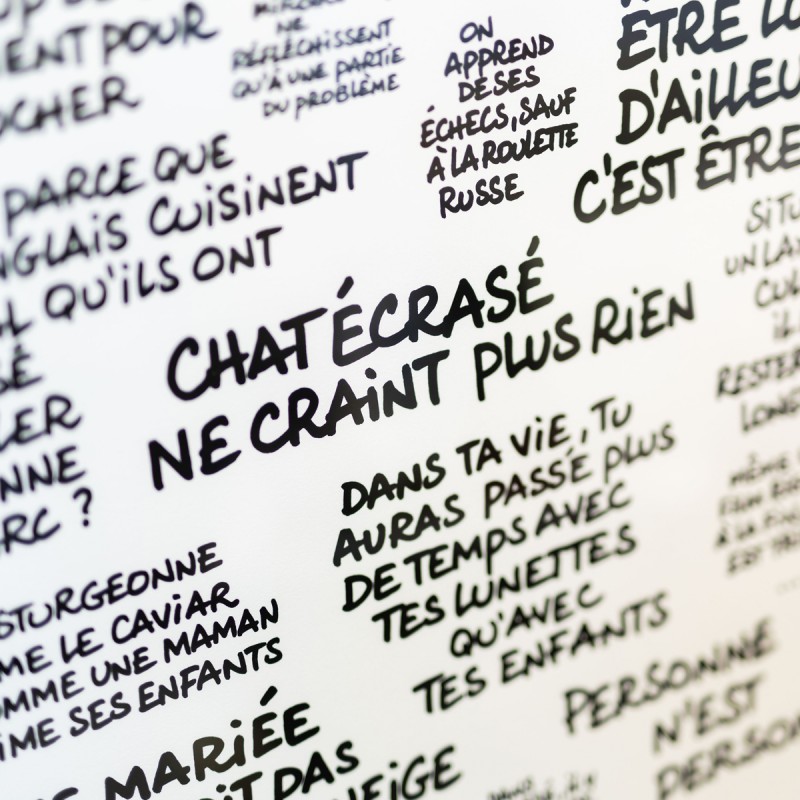 MENT POUR
OCHER
NE
RÉFLÉCHISSENT
QU'À UNE PARTIE
DU PROBLÈME
ON
APPREND
DE SES
ÉCHECS, SAUF
À LA ROULETTE
RUSSE
ÊTRE
D'AILLEU
C'EST ÊTRE
PARCE QUE
NGLAIS CUISINENT
QU'ILS ONT
CHAT ÉCRASÉ
NE CRAINT PLUS RIEN
SÉ
LER
NNE
ARC ?
SI TU
UN LA
CUL
IL
RESTER
LONG
DANS TA VIE, TU
AURAS PASSÉ PLUS
DE TEMPS AVEC
TES LUNETTES
QU'AVEC
TES ENFANTS
MÊME
STURGEONNE
ME LE CAVIAR
OMME UNE MAMAN
IME SES ENFANTS
MARIÉE
IT PAS
NEIGE
PERSONNE
N'EST
PERSON